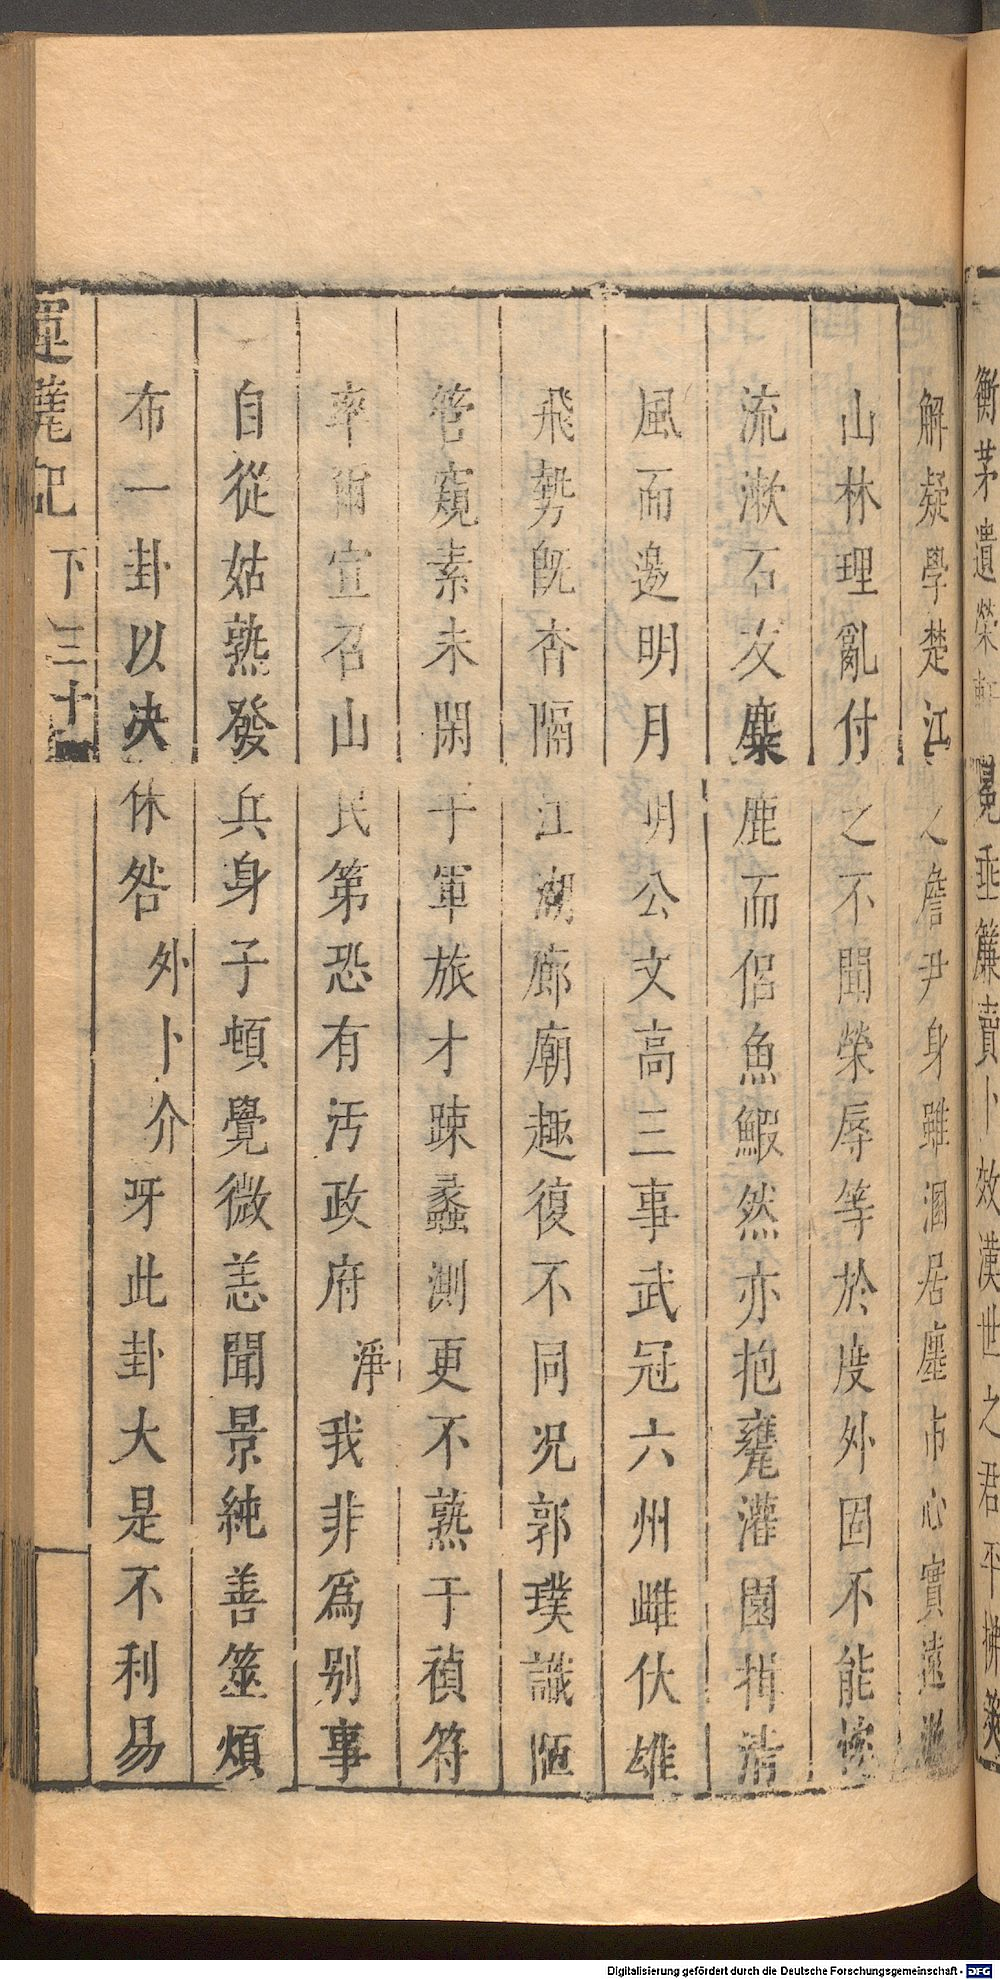 衡茅遺榮軒冕垂簾賣卜效漢世之君平拂筴
解疑學楚江之詹尹身雖溷居塵市心實遠
山林理亂付之不聞榮辱等於度外固不能
流漱石友麋鹿而侶魚鰕然亦抱甕灌園揖清
風而邀明月明公文高三事武冠六州雌伏雄
飛勢既杳隔江湖廊廟趣復不同况郭璞識陋
管窺素未閑于軍旅才踈蠡測更不熟于禎符
率爾宣召山民第恐有汚政府淨我非爲别事
自從姑熟發兵身子頓覺微恙聞景純善筮煩
布一卦以决休咎外卜介牙此卦大是不利易
運甓記
下
三十
Digitalisierung gefördert durch die Deutsche Forschungsgemeinschaft - DFG